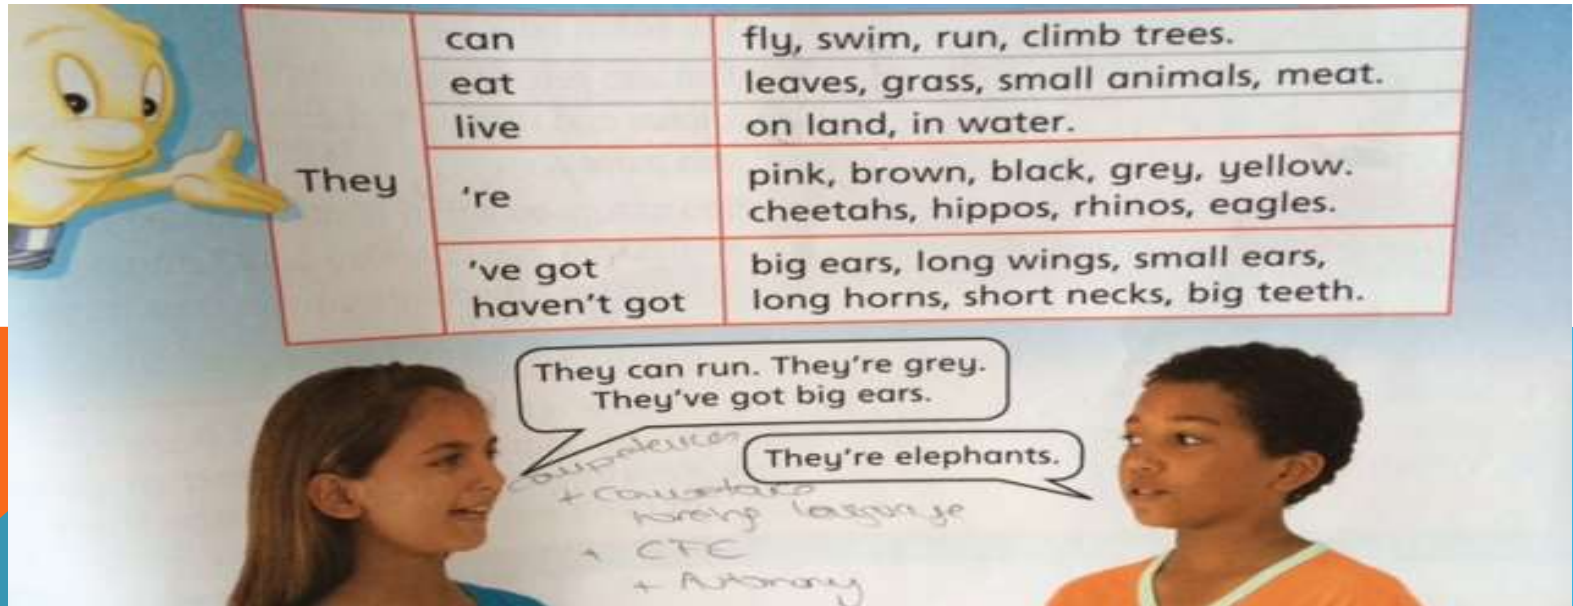 can fly, swim, run, climb trees.
eat leaves, grass, small animals, meat.
live on land, in water.
They
're
pink, brown, black, grey, yellow.
cheetahs, hippos, rhinos, eagles.
've got
haven't got
big ears, long wings, small ears,
long horns, short necks, big teeth.
They can run. They're grey.
They've got big ears.
They're elephants.
competences
+
language
+ CFC
+ Autonomy